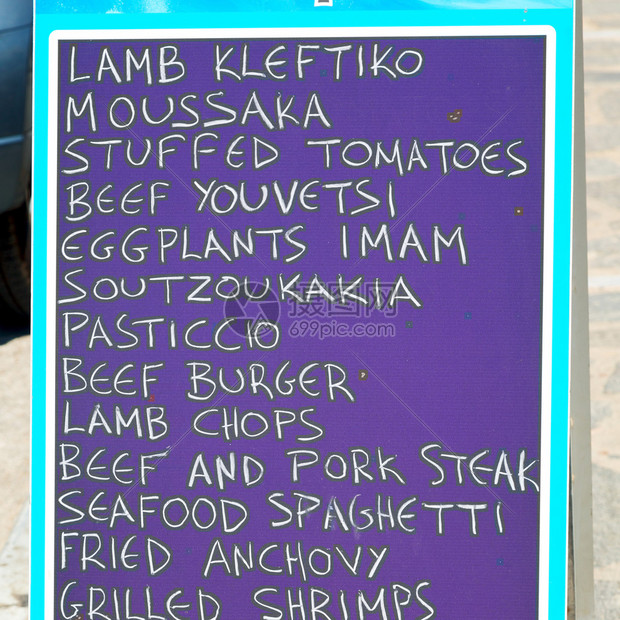 LAMB KLEFTIKO
MOUSSAKA
STUFFED TOMATOES
BEEF YOUVETSI
EGGPLANTS IMAM
SOUTZOUKAKIA
摄图网
699pic.com
PASTICCIO
BEEF BURGER
LAMB CHOPS
BEEF AND PORK STEAK
SEAFOOD SPAGHETTI
FRIED ANCHOVY
GRILLED SHRIMPS